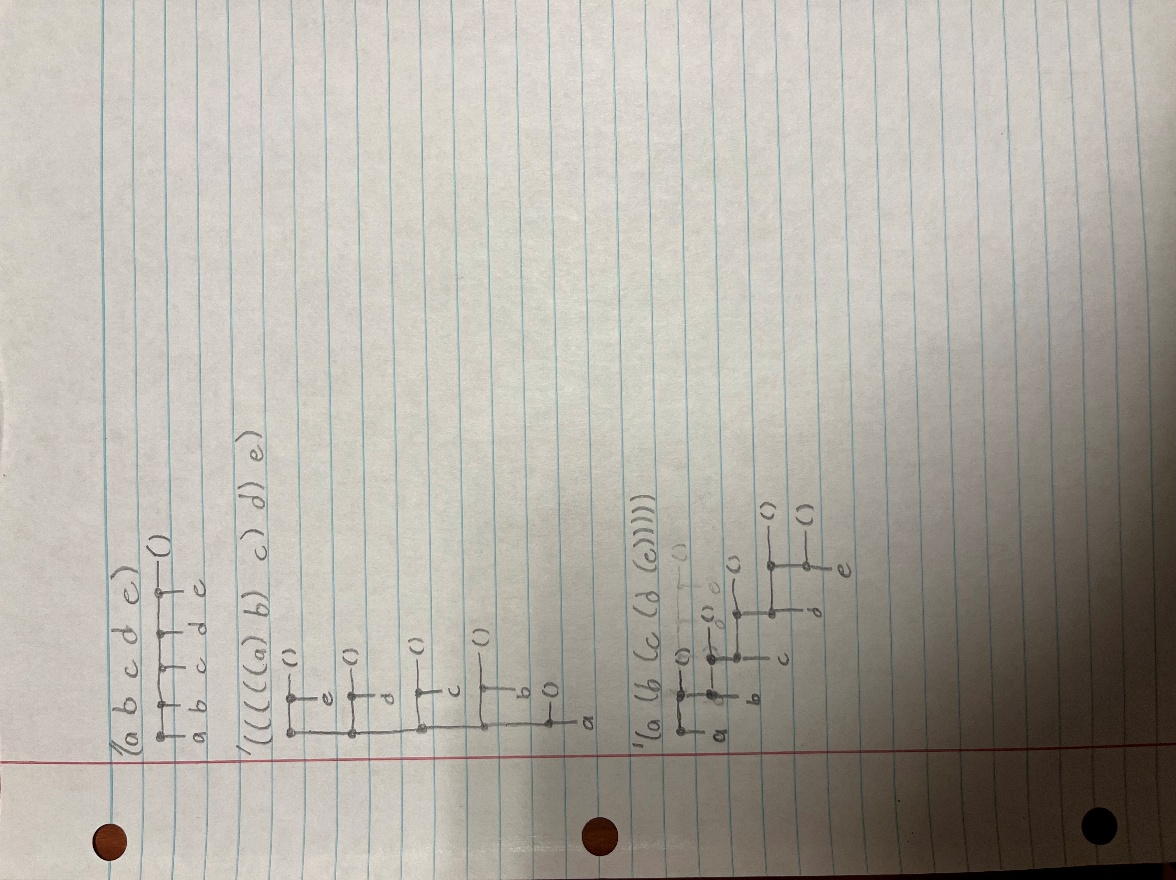 '(a b c d e)
()
a b c d e
'(((((a) b) c) d) e)
()
e
()
d
()
c
()
b
()
a
'(a (b (c (d (e)))))
()
a
()
b
()
c
()
d
()
e